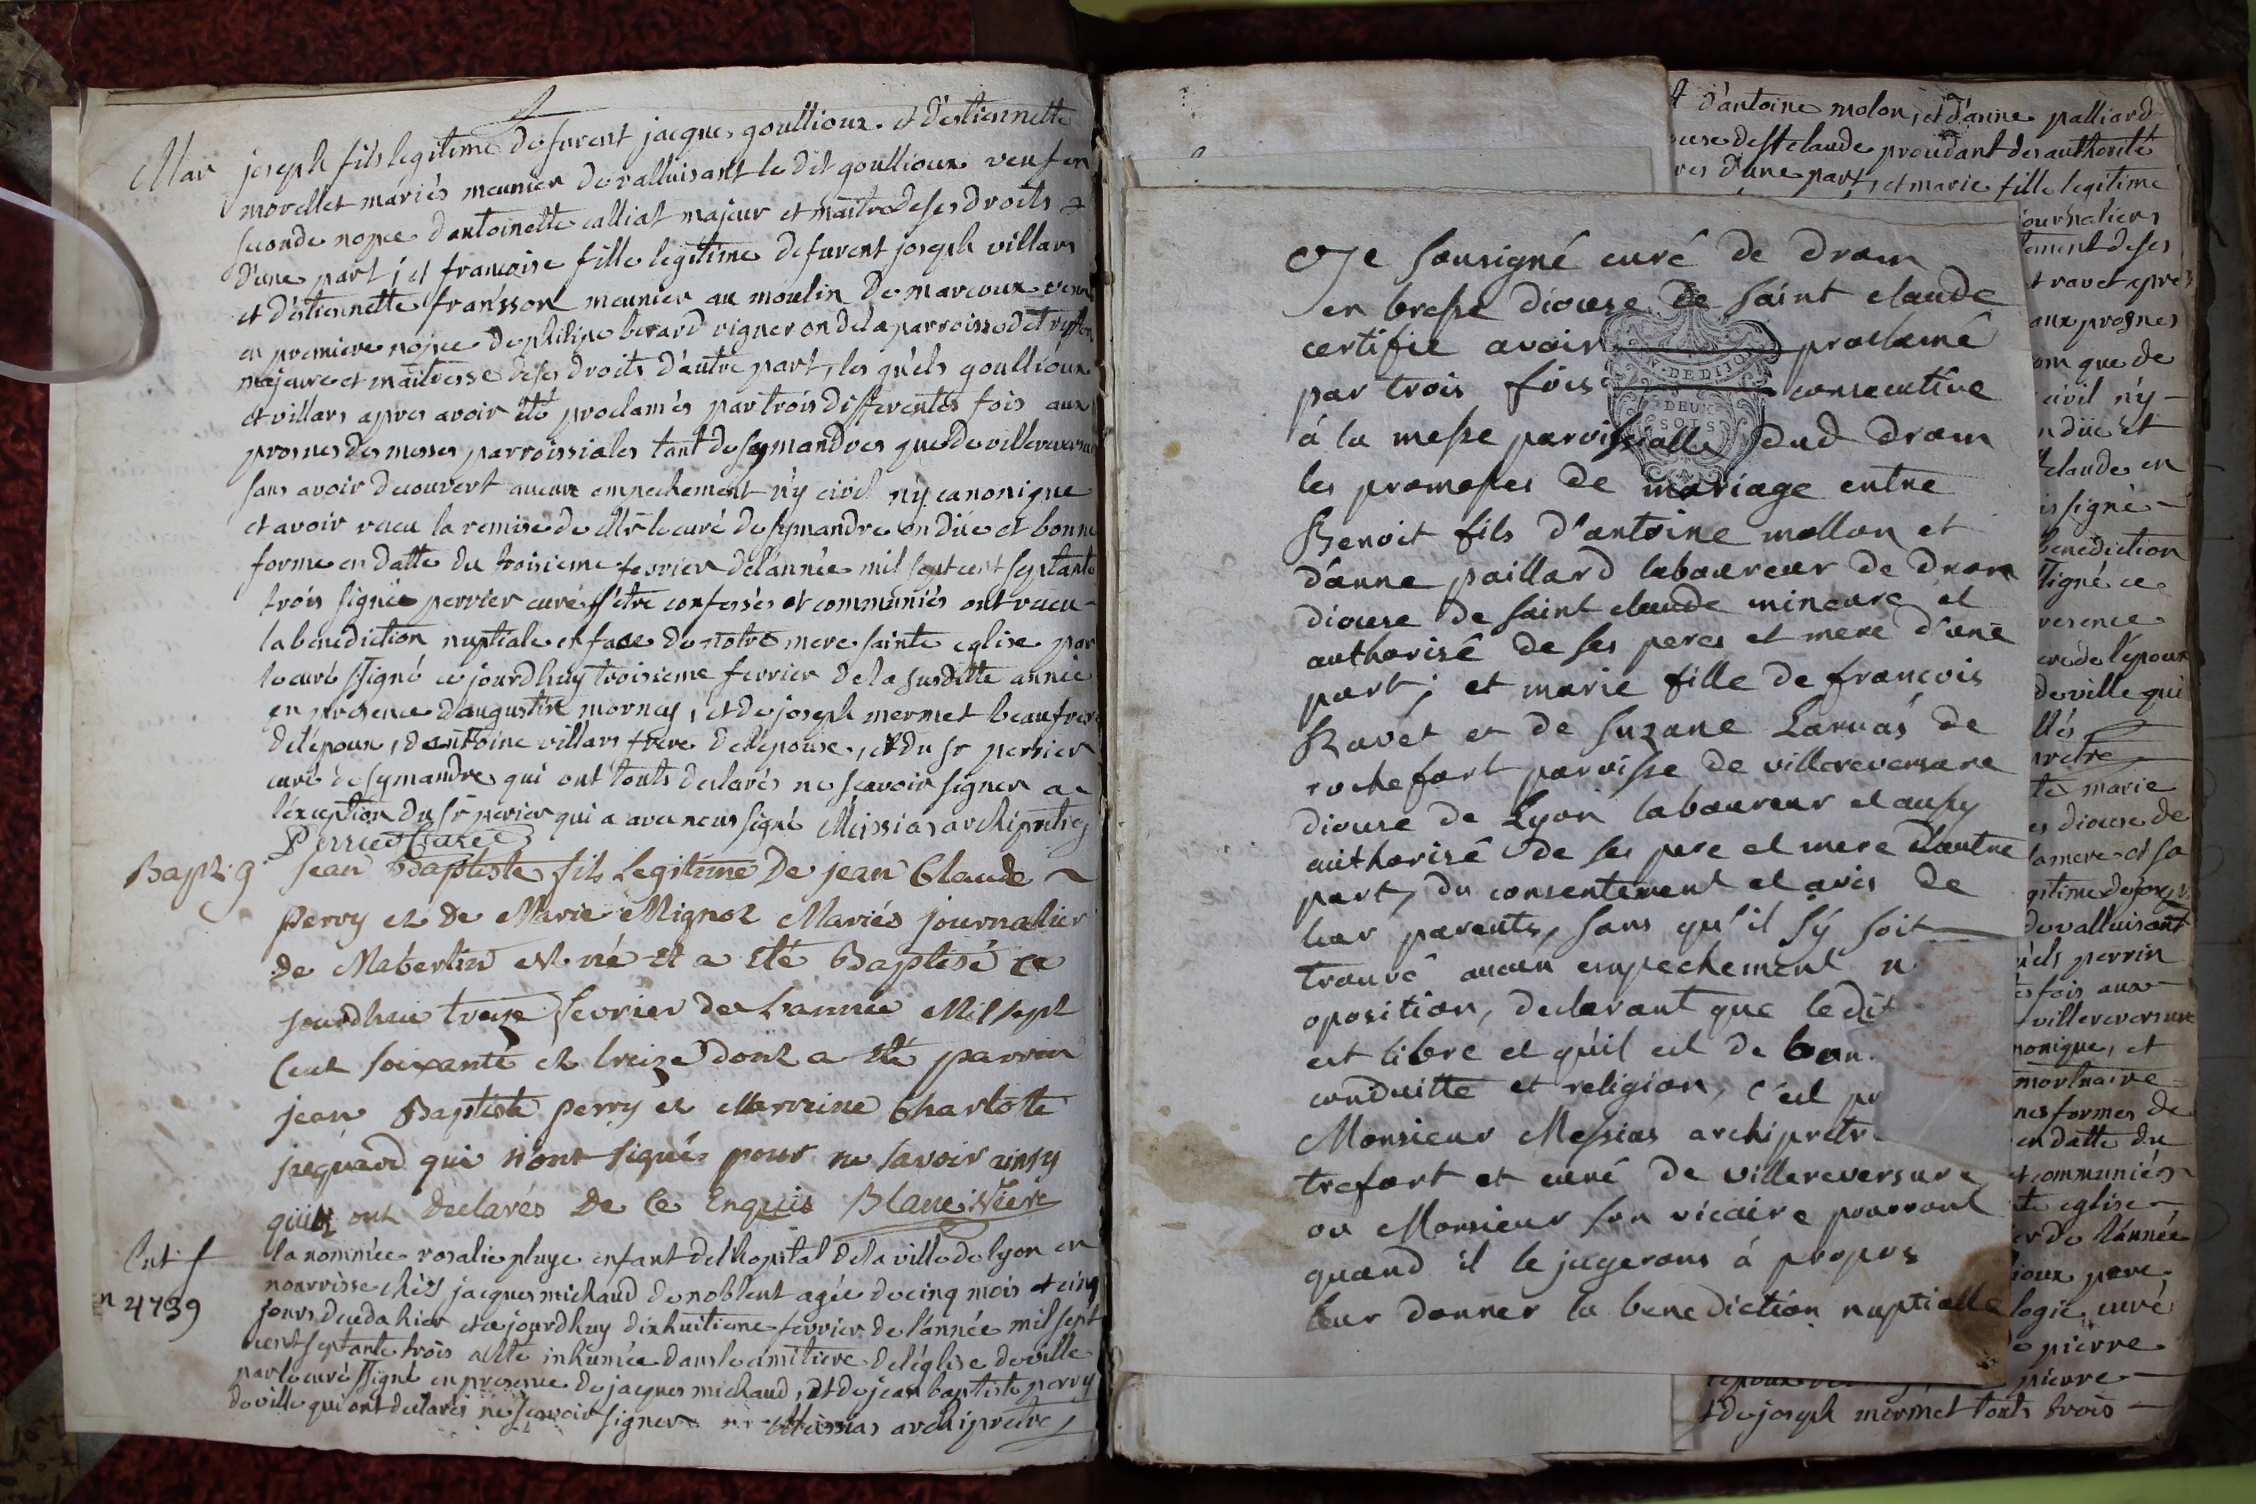 Mar joseph fils legitime de furent jacques goullioux. et d'estiennette
morellet mariés meunier de valluisant le dit goullioux veuf en
seconde nopce d'antoinette calliat majeur et maitre de ses droits
d'une part ; et francoise fille legitime de furent joseph villars
et d'estiennette fransson meunier au moulin de marcoux veuve
en premiere nopce de philipe berard vigneron de la parroisse de
majeure et maitresse de ses droits d'autre part, les quels goullioux
et villars apres avoir été proclamés par trois differentes fois aux
prosnes des messes parroissiales tant de symandres que de villereversure
sans avoir decouvert aucun empechement n'y civil n'y canonique
et avoir recu la remise de Mr le curé de symandre en düe et bonne
forme en datte du troisieme fevrier de l'année mil sept cent septante
trois signée perrier curé s'étre confessés et communiés ont recu
la benediction nuptiale en face de notre mere sainte eglise par
le curé ssigné ce jourdhuy troisieme fevrier de la susditte année
en presence d'augustin mornay, et de joseph mermet beaufrere
de l'epoux, d'antoine villars frere de l'epouse, et du sr perrier
curé de symandre qui ont touts declarés ne scavoir signer a
l'exception du sr perier qui a avec nous signé Messias archiprètre
Perrier Curé
Bapt. g jean Baptiste fils Legitime De jean Claude
perry et De Marie Mignot Mariés journalier
de Maberlin est né et a été Baptisé ce
jourdhui treize fevrier de L'année Mil sept
Cent soixante et treize dont a été parrin
jean Baptiste perry et Marrine Charlotte
jaquard qui n'ont signé pour ne savoir ainsy
quils ont Declarés De Ce Enquis Blanc Vicre
Ent. f la nommée rosalie pluye enfant de l'hopital de la ville de lyon en
nourrisse chés jacques michaud de noblent agée de cinq mois et cinq
n 4739 jours deceda hier et ce jourdhuy dixhuitieme fevrier de l'année mil sept
cent septante trois a été inhumée dans le cimetiere de l'église de ville
par le curé ssigné en presence de jacques michaud, et de jean baptiste perry
de ville qui ont declarés ne scavoir signer Messias archiprètre
Je sousigné curé de drom
en bresse diocese de saint claude
certifie avoir proclamé
par trois fois consecutive
à la messe paroissialle dud drom
les promesses de mariage entre
Benoit fils d'antoine mollon et
d'anne paillard laboureur de drom
diocese de saint claude mineure et
authorisé de ses peres et mere d'une
part ; et marie fille de francois
Ravet et de suzane Larvás de
rochefort paroisse de villereversure
diocese de Lyon laboureur et aussy
authorisé de ses pere et mere d'autre
part, du consentement et avis de
leur parents, sans qu'il s'y soit
trouvé aucun empechement n
oposition, declarant que ledit
est libre et qu'il est de bon
conduitte et religion, c'est p
Monsieur Messias archipretr
trefort et curé de villereversure
ou Monsieur son vicaire pourront
quand il le jugerons à propos
leur donner la benediction nuptialle
DE DIJON
DEUX
SOLS
d'antoine molon, et d'anne palliard
de st claude procedant des authorité
d'une part, et marie fille legitime
journaliers
de ses
et ravet apre
aux prosnes
que de
civil n'y
düe et
claude en
signé
benediction
ssigné ce
presence
de l'époux
de ville qui
marie
diocese de
la mere et sa
de valluisant
perrin
fois aux
villereversure
canonique, et
mortuaire
formes de
en datte du
et communiés
eglise
de l'année
pere
curé
pierre
pierre
et de joseph mermet touts trois